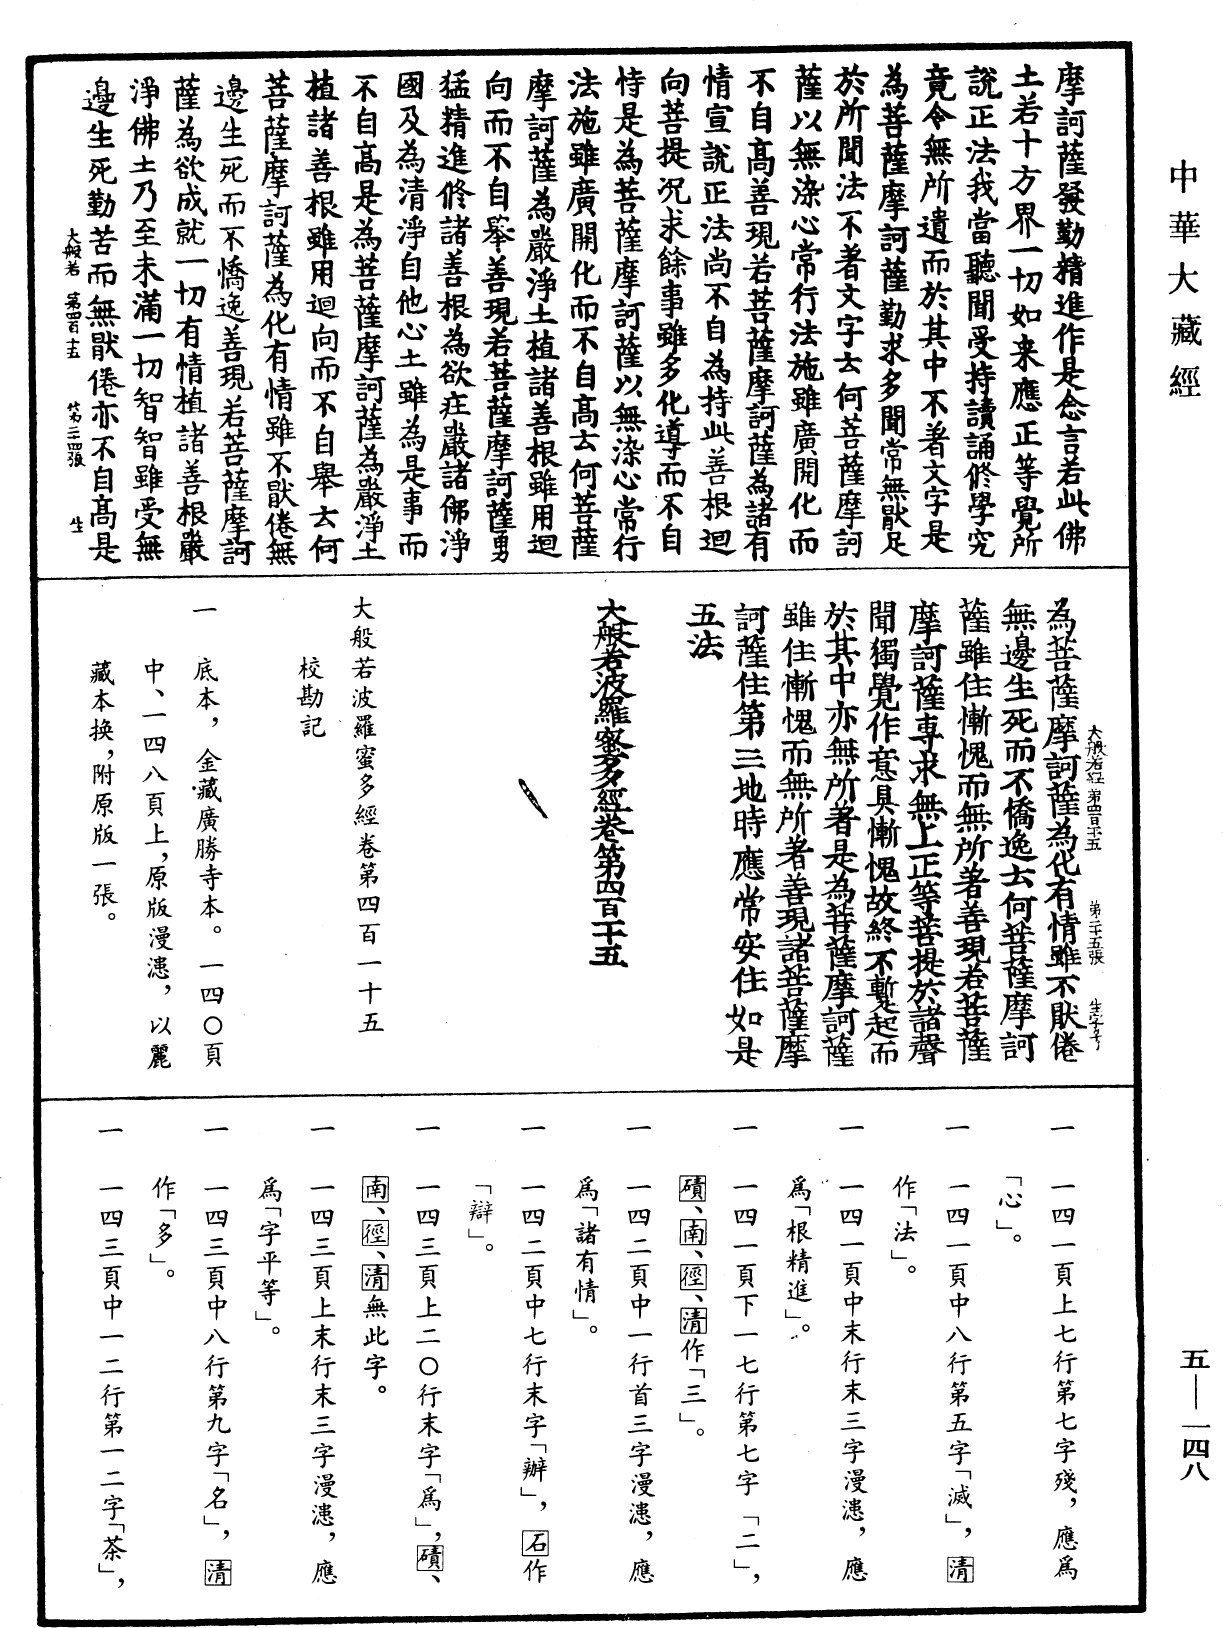 中華大藏經
摩訶薩發勤精進作是念言若此佛
土若十方界一切如来應正等覺所
說正法我當聽聞受持讀誦修學究
竟令無所遺而於其中不著文字是
為菩薩摩訶薩勤求多聞常無猒足
於所聞法不著文字云何菩薩摩訶
薩以無染心常行法施雖廣開化而
不自髙善現若菩薩摩訶薩為諸有
情宣說正法尚不自為持此善根迴
向菩提况求餘事雖多化導而不自
恃是為菩薩摩訶薩以無染心常行
法施雖廣開化而不自髙云何菩薩
摩訶薩為嚴淨土植諸善根雖用迴
向而不自舉善現若菩薩摩訶薩勇
猛精進修諸善根為欲莊嚴諸佛淨
國及為清淨自他心土雖為是事而
不自髙是為菩薩摩訶薩為嚴淨土
植諸善根雖用迴向而不自舉云何
菩薩摩訶薩為化有情雖不猒倦無
邊生死而不憍逸善現若菩薩摩訶
薩為欲成就一切有情植諸善根嚴
淨佛土乃至未滿一切智智雖受無
邊生死勤苦而無猒倦亦不自髙是
大般若 第四百十五 第二十四張 生
大般若經 第四百十五 第二十五張 生字号
為菩薩摩訶薩為化有情雖不猒倦
無邊生死而不憍逸云何菩薩摩訶
薩雖住慚愧而無所著善現若菩薩
摩訶薩專求無上正等菩提於諸聲
聞獨覺作意具慚愧故終不暫起而
於其中亦無所著是為菩薩摩訶薩
雖住慚愧而無所著善現諸菩薩摩
訶薩住第三地時應常安住如是
五法
大般若波羅蜜多經卷第四百一十五
大般若波羅蜜多經卷第四百一十五
校勘記
一 底本，金藏廣勝寺本。一四〇頁
中、一四八頁上，原版漫漶，以麗
藏本换，附原版一張。
一 一四一頁上七行第七字殘，應爲
「心」。
一 一四一頁中八行第五字「滅」，清
作「法」。
一 一四一頁中末行末三字漫漶，應
爲「根精進」。
一 一四一頁下一七行第七字「二」，
磧、南、徑、清作「三」。
一 一四二頁中一行首三字漫漶，應
爲「諸有情」。
一 一四二頁中七行末字「辦」，石作
「辯」。
一 一四三頁上二〇行末字「爲」，磧、
南、徑、清無此字。
一 一四三頁上末行末三字漫漶，應
爲「字平等」。
一 一四三頁中八行第九字「名」，清
作「多」。
一 一四三頁中一二行第一二字「茶」，
五—一四八